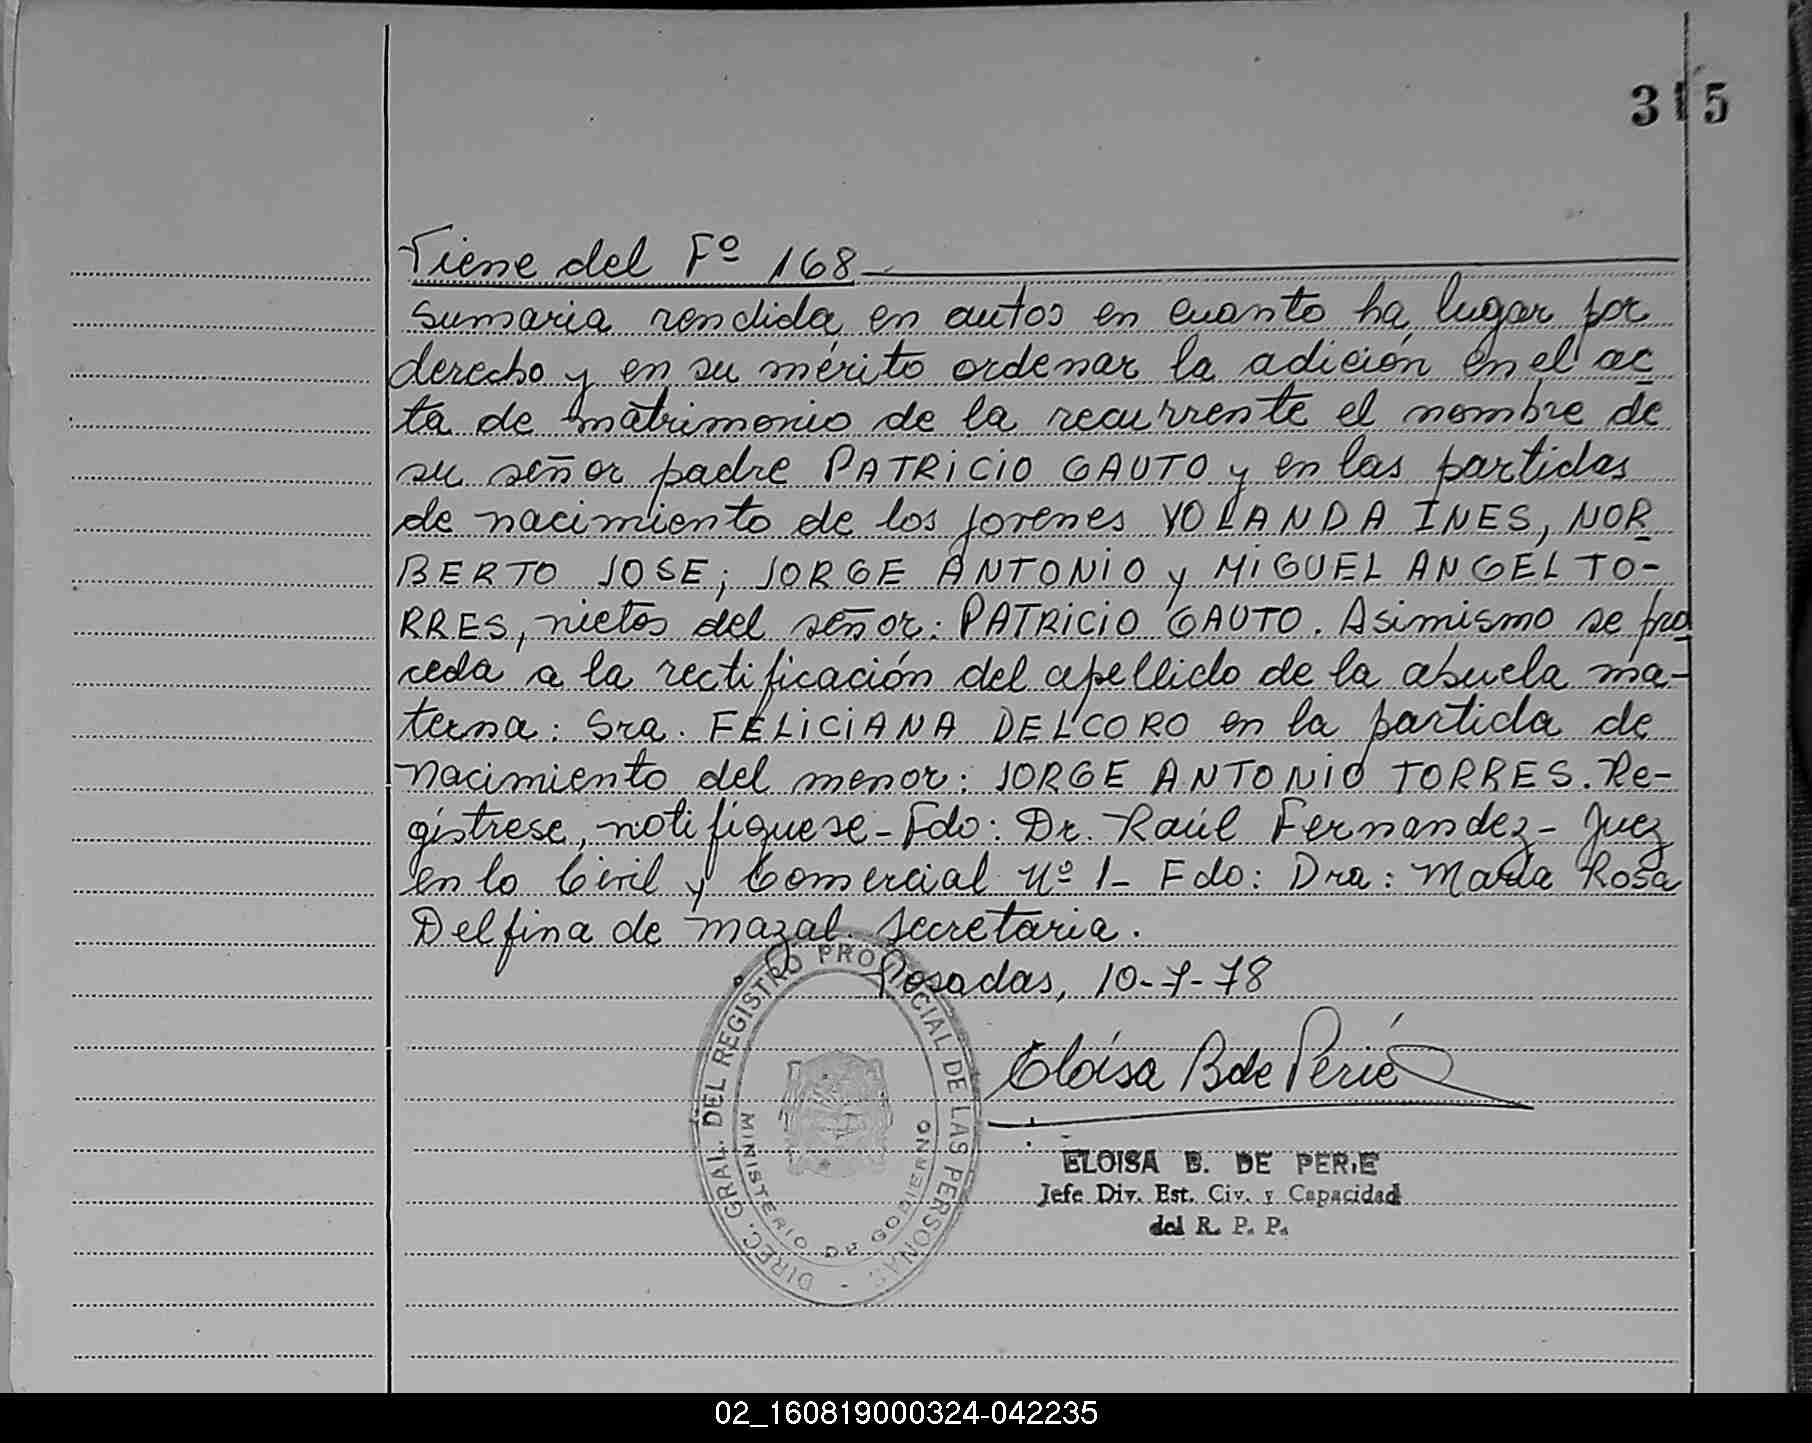 315
Viene del Fº 168
sumaria rendida en autos en cuanto ha lugar por
derecho y en su mérito ordenar la adición en el ac
ta de matrimonio de la recurrente el nombre de
su señor padre PATRICIO GAUTO y en las partidas
de nacimiento de los jovenes YOLANDA INES, NOR
BERTO JOSE; JORGE ANTONIO y MIGUEL ANGEL TO-
RRES, nietos del señor: PATRICIO GAUTO. Asimismo se pro
ceda a la rectificación del apellido de la abuela ma-
terna: Sra. FELICIANA DELCORO en la partida de
nacimiento del menor: JORGE ANTONIO TORRES. Re-
gístrese, notifiquese - Fdo: Dr. Raúl Fernandez - Juez
en lo Civil y Comercial Nº 1 - Fdo: Dra: Maria Rosa
Delfina de Mazal. Secretaria.
Posadas, 10-7-78
Eloísa B de Perié
ELOISA B. DE PERIE
Jefe Div. Est. Civ. y Capacidad
del R. P. P.
DIREC. GRAL. DEL REGISTRO PROVINCIAL DE LAS PERSONAS
MINISTERIO DE GOBIERNO
02_160819000324-042235